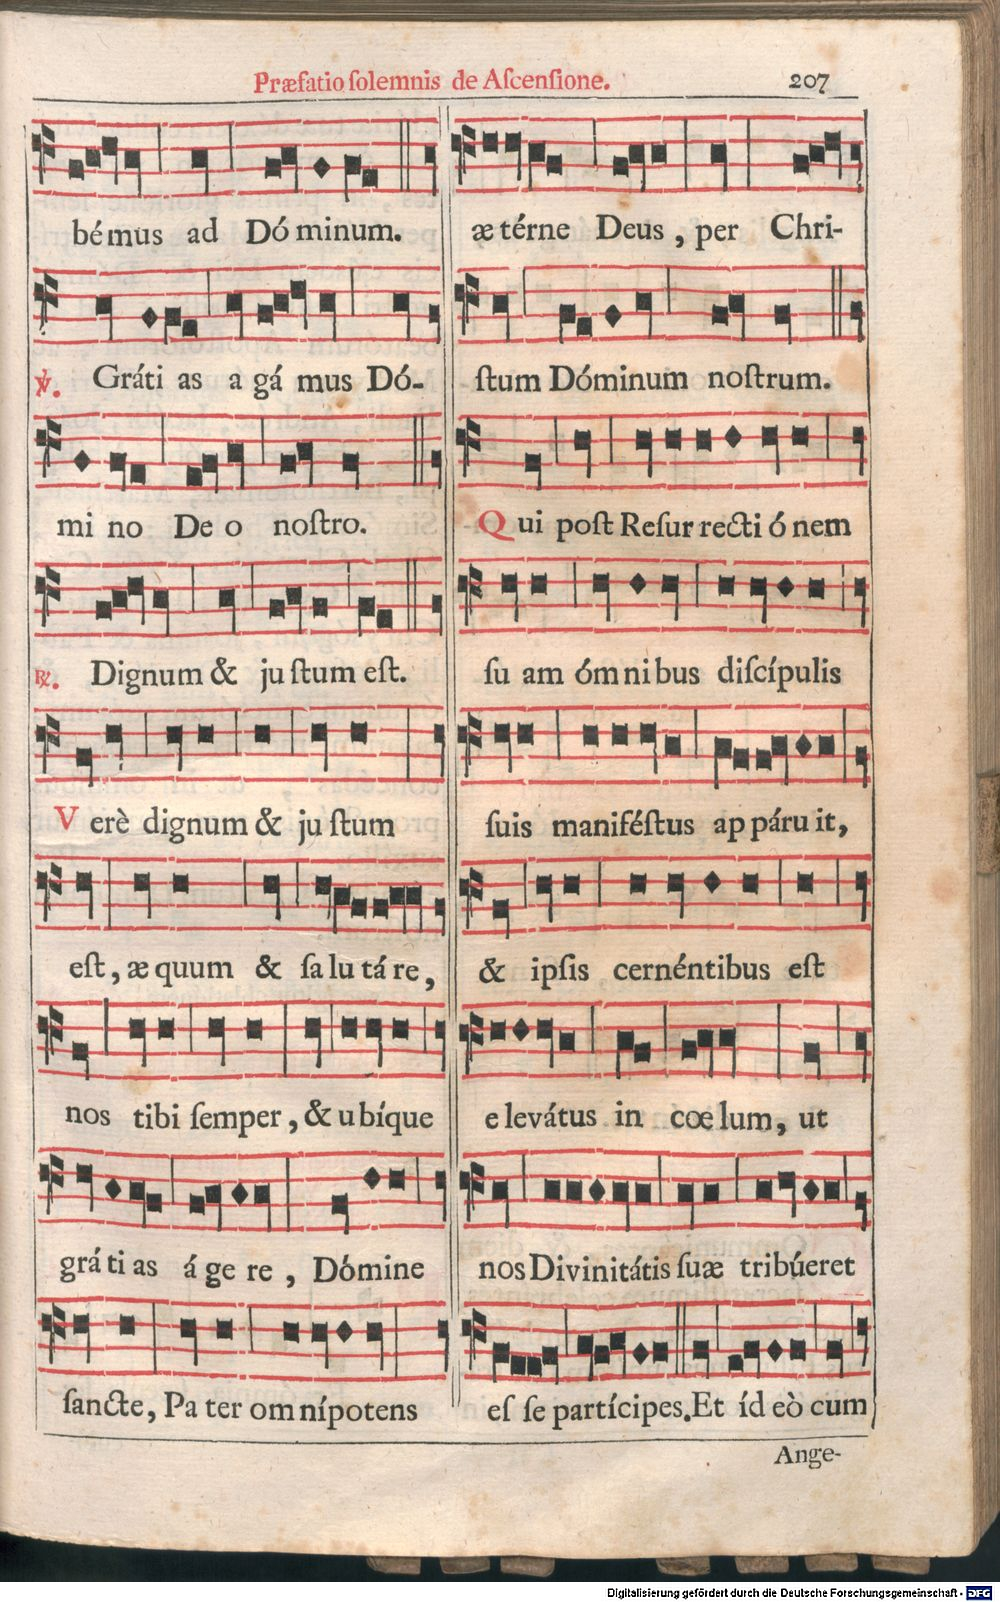 Præfatio ſolemnis de Aſcenſione. 207
bémus ad Dó minum.
℣. Gráti as a gá mus Dó-
mi no De o noſtro.
℟. Dignum & ju ſtum eſt.
V erè dignum & ju ſtum
eſt, æ quum & ſa lu tá re,
nos tibi ſemper, & u bíque
grá ti as á ge re, Dómine
ſancte, Pa ter om nípotens
æ térne Deus, per Chri-
ſtum Dóminum noſtrum.
Q ui poſt Reſur recti ó nem
ſu am óm ni bus diſcípulis
ſuis maniféſtus ap páru it,
& ipſis cernéntibus eſt
e levátus in cœ lum, ut
nos Divinitátis ſuæ tribúeret
eſ ſe partícipes. Et íd eò cum
Ange-
Digitalisierung gefördert durch die Deutsche Forschungsgemeinschaft - DFG